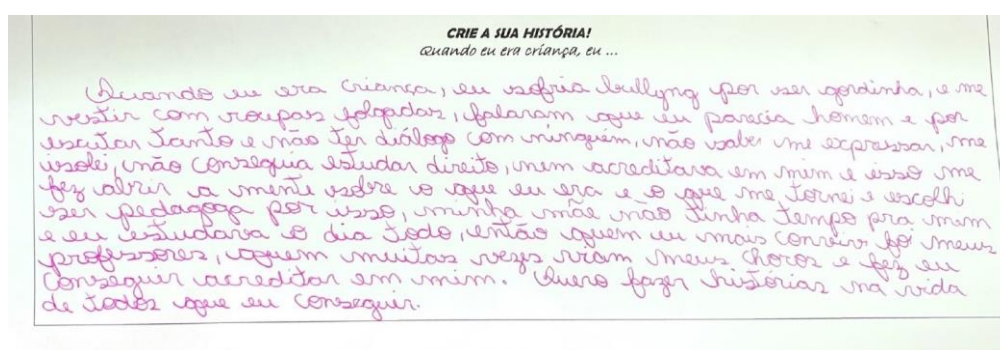 CRIE A SUA HISTÓRIA!
Quando eu era criança, eu ...
Quando eu era criança, eu sofria bullyng por ser gordinha, e me
vestir com roupas folgadas, falaram que eu parecia homem e por
escutar tanto e não ter diálogo com ninguém, não saber me expressar, me
isolei, não conseguia estudar direito, nem acreditava em mim e isso me
fez abrir a mente sobre o que eu era e o que me tornei e escolhi
ser pedagoga por isso, minha mãe não tinha tempo pra mim
e eu estudava o dia todo, então quem eu mais convivi foi meus
professores, quem muitas vezes viram meus choros e fez eu
conseguir acreditar em mim. Quero fazer histórias na vida
de todos que eu conseguir.